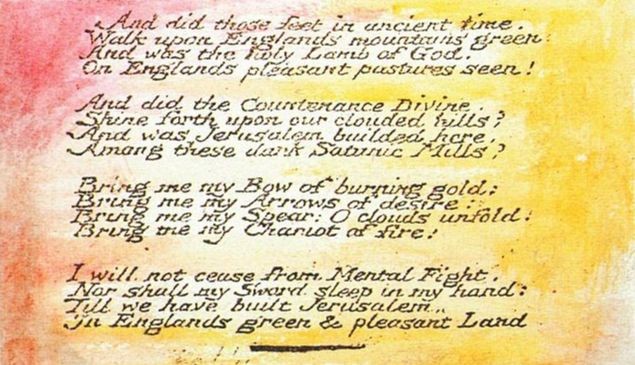 And did those feet in ancient time.
Walk upon Englands mountains green:
And was the holy Lamb of God.
On Englands pleasant pastures seen!
And did the Countenance Divine.
Shine forth upon our clouded hills?
And was Jerusalem builded here.
Among these dark Satanic Mills?
Bring me my Bow of burning gold:
Bring me my Arrows of desire:
Bring me my Spear: O clouds unfold!
Bring me my Chariot of fire!
I will not cease from Mental Fight.
Nor shall my Sword sleep in my hand:
Till we have built Jerusalem.
In Englands green & pleasant Land